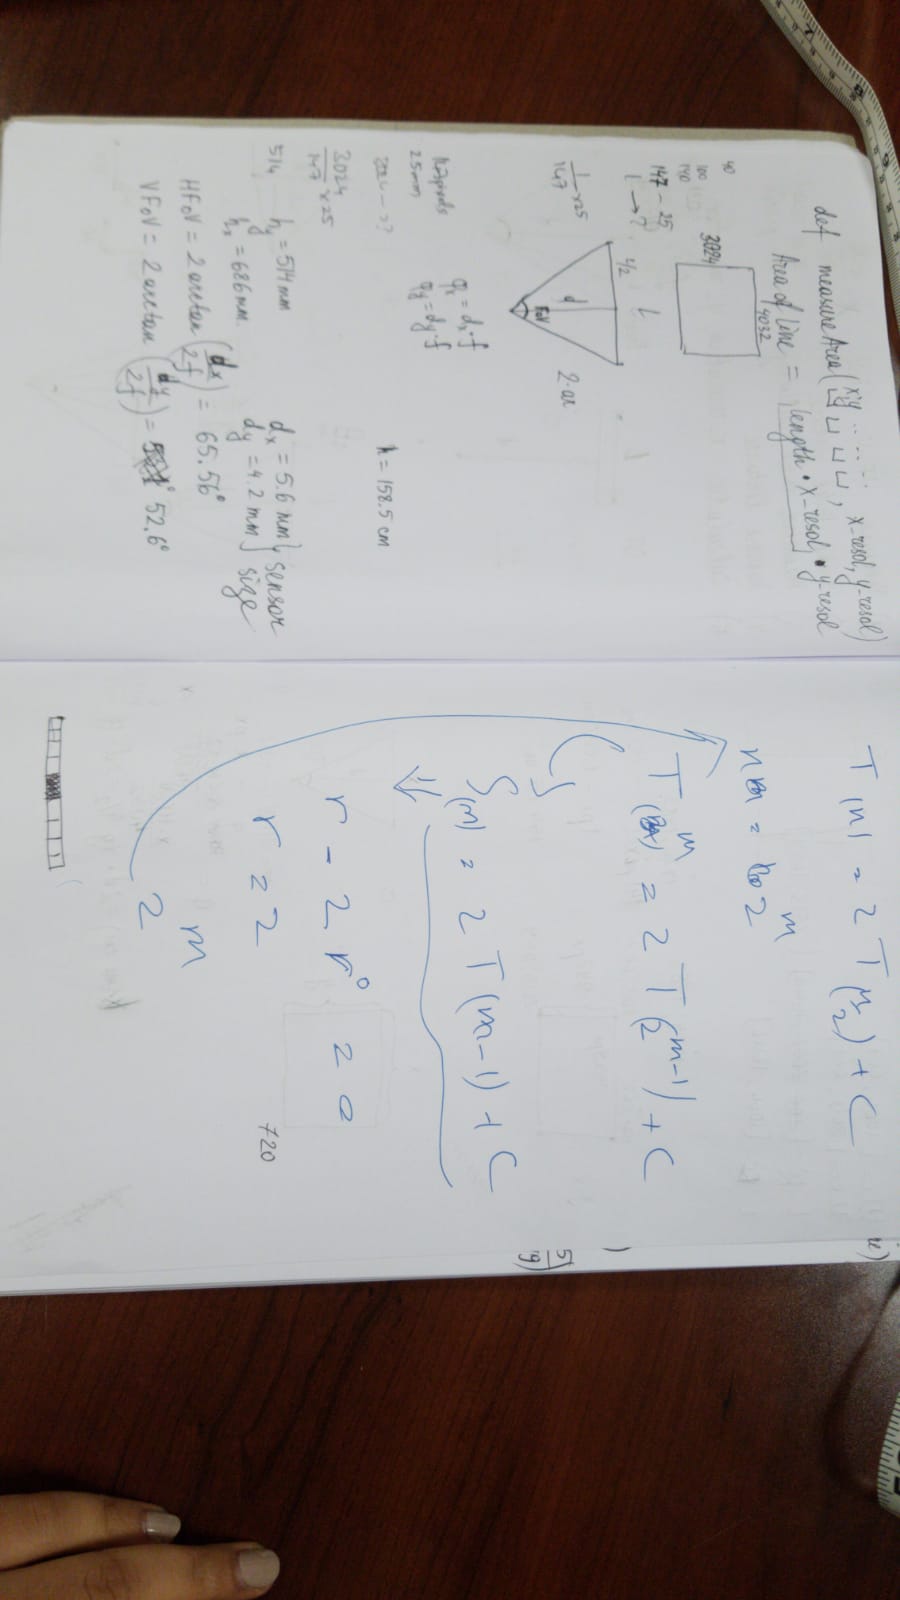 def measureArea( x,y , x-resol, y-resol)
Area of Line = length • x-resol • y-resol
4032
3024
40
100
140
147 - 25
1 → ?
l
l/2
d
FoV
2·ar
1/147 x25
qx = dx·f
qy = dy·f
147pixels
25mm
h = 158.5 cm
3024/147 x25
514
hy = 514 mm
hx = 686 mm.
dx = 5.6 mm
dy = 4.2 mm
sensor
size
HFoV = 2 arctan (dx/2f) = 65.56°
VFoV = 2 arctan (dy/2f) = 52.6°
T(n) = 2 T(n/2) + C
n = 2^m
T(2^m) = 2 T(2^m-1) + C
S(m) = 2 T(m-1) + C
r - 2 r° = 0
r = 2
2^m
720
e)
)
5
9)